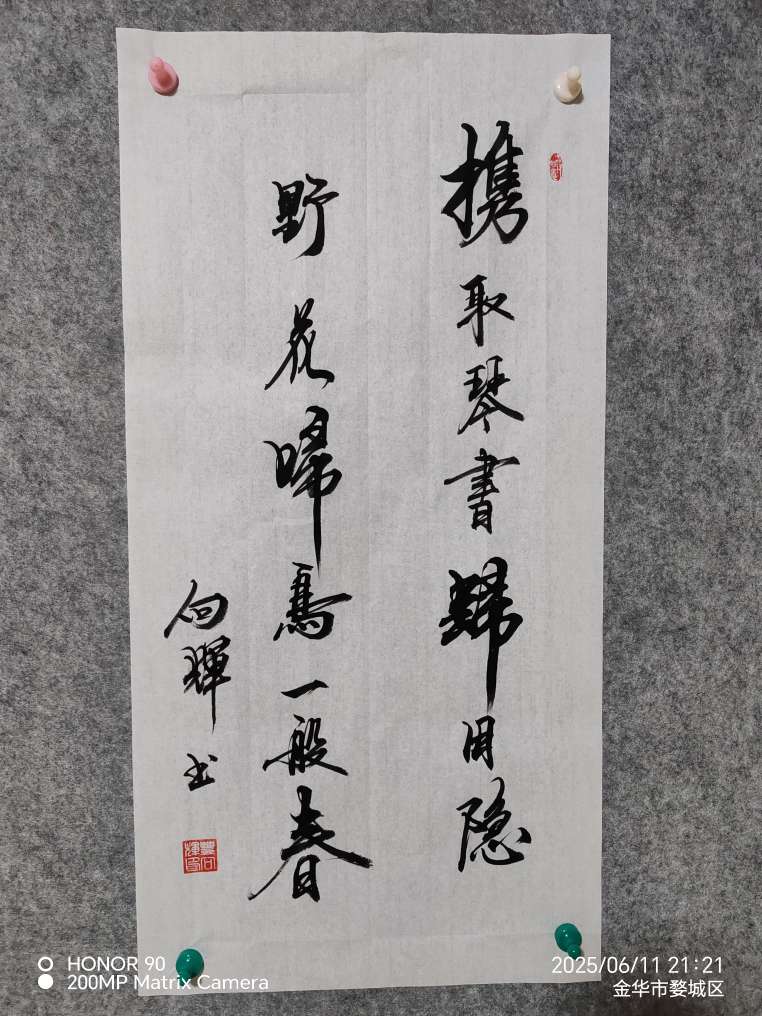 携取琴書歸旧隐
野花啼鳥一般春
向輝书
HONOR 90
200MP Matrix Camera
2025/06/11 21:21
金华市婺城区